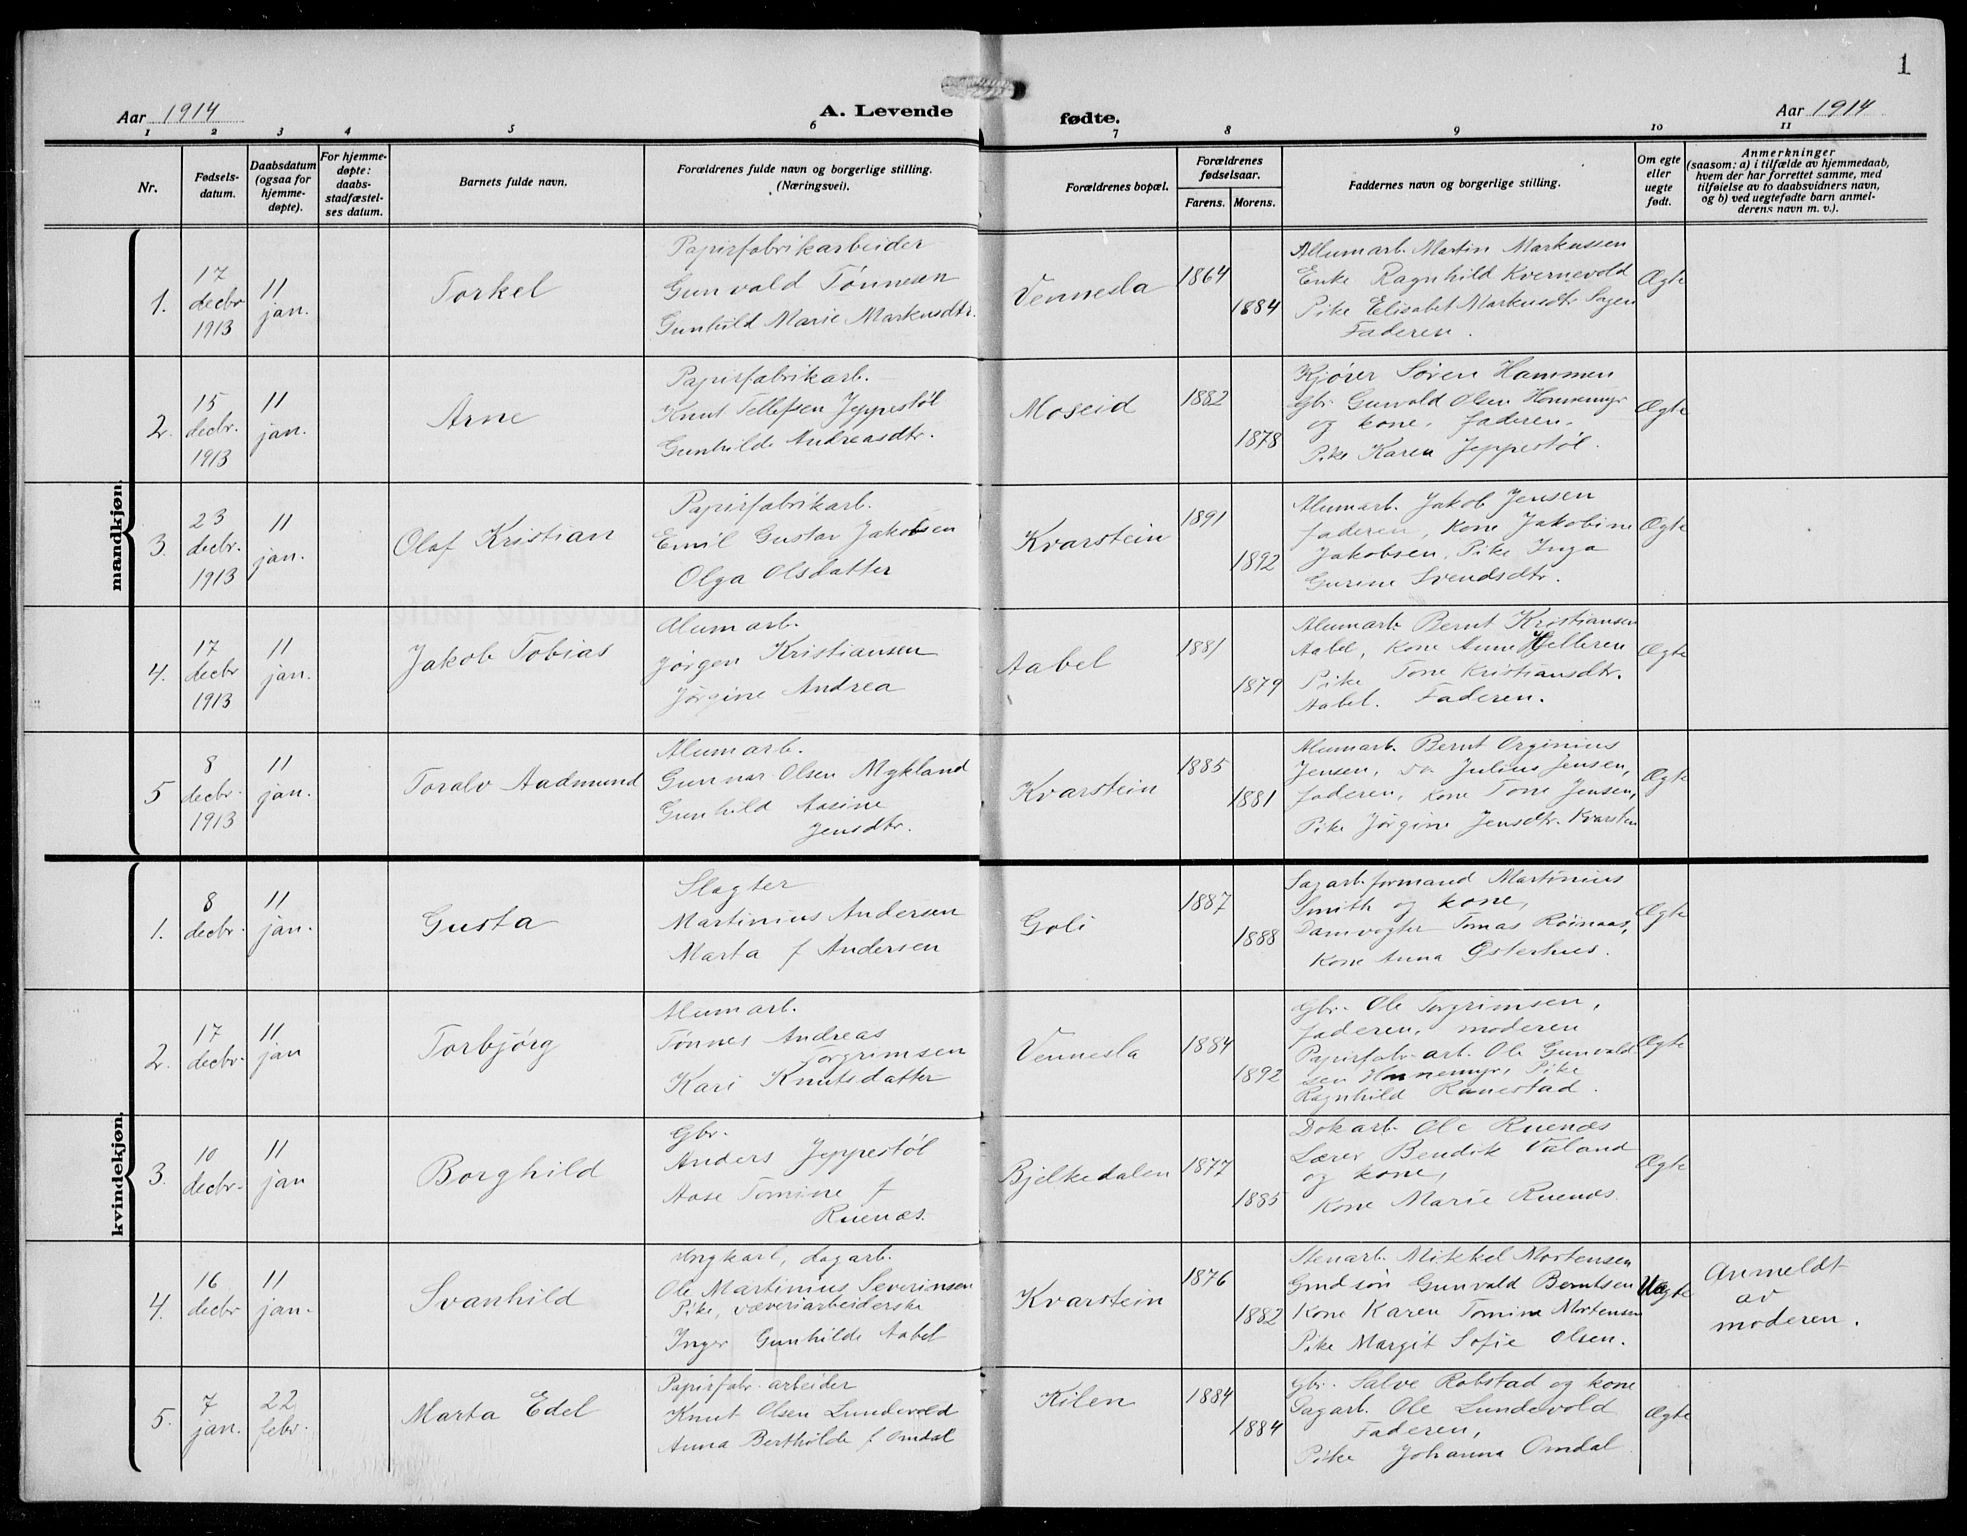 1
Aar 1914
A. Levende fødte.
Aar 1914
1 2 3 4 5 6 7 8 9 10 11
Nr.
Fødsels-
datum.
Daabsdatum
(ogsaa for
hjemme-
døpte).
For hjemme-
døpte:
daabs-
stadfæstel-
ses datum.
Barnets fulde navn.
Forældrenes fulde navn og borgerlige stilling.
(Næringsvei).
Forældrenes bopæl.
Forældrenes
fødselsaar.
Farens. Morens.
Faddernes navn og borgerlige stilling.
Om egte
eller
uegte
født.
Anmerkninger
(saasom: a) i tilfælde av hjemmedaab,
hvem der har forrettet samme, med
tilføielse av to daabsvidners navn,
og b) ved uegtefødte barn anmel-
derens navn m. v.).
mandkjøn.
1.
17
decbr
1913
11
jan.
Torkel
Papirfabrikarbeider
Gunvald Tønnesen
Gunhild Marie Markusdtr.
Vennesla
1864
1884
Alumarb. Martin Markussen
Enke Ragnhild Kvernevold
Pike Elisabet Markusdtr Sagen
Faderen.
Ægte
2.
15
decbr.
1913
11
jan.
Arne
Papirfabrikarb.
Knut Tellefsen Jeppestøl
Gunhilde Andreasdtr.
Moseid
1882
1878
Kjører Søren Hammen
Gbr. Gunvald Olsen Honnemyr
og kone, faderen,
Pike Karen Jeppestøl.
Ægte
3.
23
decbr.
1913
11
jan.
Olaf Kristian
Papirfabrikarb.
Emil Gustav Jakobsen
Olga Olsdatter
Kvarstein
1891
1892
Alumarb. Jakob Jensen
faderen, Kone Jakobine
Jakobsen, Pike Inga
Gurine Svendsdtr.
Ægte
4.
17
decbr
1913
11
jan.
Jakob Tobias
Alumarb.
Jørgen Kristiansen
Jørgine Andrea
Aabel
1881
1879
Alumarb. Bernt Kristiansen
Aabel, Kone Anne Hjelleren
Pike Tone Kristiansdtr.
Aabel. Faderen.
Ægte
5
8
decbr.
1913
11
jan.
Toralv Aadmund
Alumarb.
Gunnar Olsen Mykland
Gunhild Aasine
Jensdtr.
Kvarstein
1885
1881
Alumarb. Bernt Orginius
Jensen, do Julius Jensen,
faderen, Kone Tone Jensen,
Pike Jørgine Jensdtr. Kvarsten
Ægte
kvindekjøn.
1.
8
decbr.
11
jan.
Gusta
Slagter
Martinius Andersen
Marta f Andersen
Goli
1887
1888
Sagarb. formand Martinius
Smith og kone,
Damvogter Tomas Røinaas,
Kone Anna Østerhus.
Ægte
2.
17
decbr.
11
jan
Torbjørg
Alumarb.
Tønnes Andreas
Torgrimsen
Kari Knutsdatter
Vennesla
1884
1892
Gbr. Ole Torgrimsen,
faderen, moderen
Papirfabr. arb. Ole Gunvald-
sen Honnemyr, Pike
Ragnhild Ranestad.
Ægte
3.
10
decbr.
11
jan
Borghild
Gbr.
Anders Jeppestøl
Aase Tomine f
Ruenæs.
Bjelkedalen
1877
1885
Dokarb. Ole Ruenæs
Lærer Bendik Valand
og kone,
Kone Marie Ruenæs.
Ægte
4.
16
decbr
11
jan.
Svanhild
Ungkarl, dagarb.
Ole Martinius Severinsen
Pike, væveriarbeiderske
Inger Gunhilde Aabel
Kvarstein
1876
1882
Stenarb. Mikkel Mortensen
Grudsøn Gunvald Berntsen
Kone Karen Tomine Mortensen
Pike Margit Sofie Olsen.
Uægte
Anmeldt
av
moderen.
5.
7
jan.
22
febr.
Marta Edel
Papirfabr. arbeider
Knut Olsen Lundevold
Anna Berthilde f Omdal
Kilen
1884
1884
Gbr. Salve Robstad og kone
Sagarb. Ole Lundevold
Faderen,
Pike Johanna Omdal.
Ægte